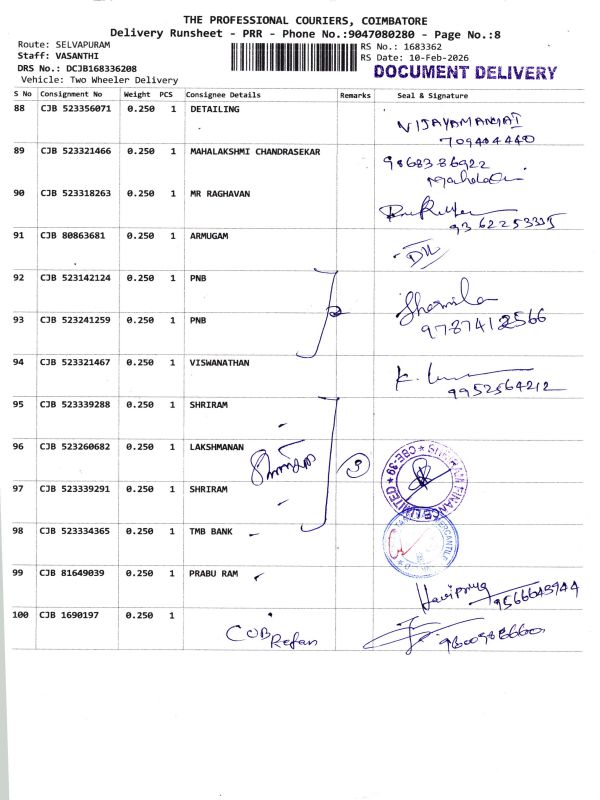 THE PROFESSIONAL COURIERS, COIMBATORE
Delivery Runsheet - PRR - Phone No.:9047080280 - Page No.:8
Route: SELVAPURAM
Staff: VASANTHI
DRS No.: DCJB168336208
Vehicle: Two Wheeler Delivery
RS No.: 1683362
RS Date: 10-Feb-2026
DOCUMENT DELIVERY
S No Consignment No Weight PCS Consignee Details Remarks Seal & Signature
88 CJB 523356071 0.250 1 DETAILING
89 CJB 523321466 0.250 1 MAHALAKSHMI CHANDRASEKAR
9868386922
90 CJB 523318263 0.250 1 MR RAGHAVAN
9362253335
91 CJB 80863681 0.250 1 ARMUGAM
92 CJB 523142124 0.250 1 PNB
Sharmila
93 CJB 523241259 0.250 1 PNB
9787412566
94 CJB 523321467 0.250 1 VISWANATHAN
9952564212
95 CJB 523339288 0.250 1 SHRIRAM
96 CJB 523260682 0.250 1 LAKSHMANAN
3
97 CJB 523339291 0.250 1 SHRIRAM
98 CJB 523334365 0.250 1 TMB BANK
99 CJB 81649039 0.250 1 PRABU RAM
Haripriya
100 CJB 1690197 0.250 1